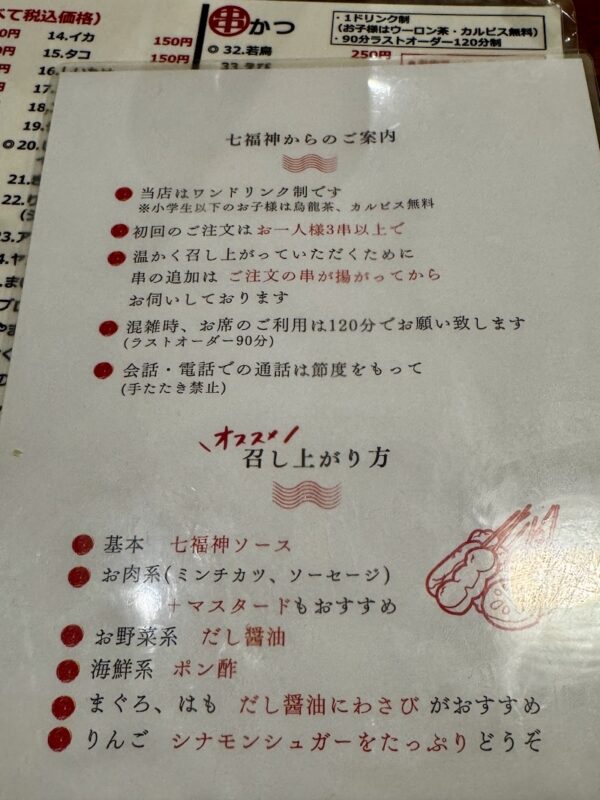 べて税込価格)
14.イカ
150円
15.タコ
150円
16.しいたけ
17.
18.
20.
21.
22.
23.ア
串かつ
◎32.若鳥
250円
・1ドリンク制
(お子様はウーロン茶・カルピス無料)
・90分ラストオーダー120分制
七福神からのご案内
当店はワンドリンク制です
※小学生以下のお子様は烏龍茶、カルピス無料
初回のご注文はお一人様3串以上で
温かく召し上がっていただくために
串の追加は ご注文の串が揚がってから
お伺いしております
混雑時、お席のご利用は120分でお願い致します
(ラストオーダー90分)
会話・電話での通話は節度をもって
(手たたき禁止)
オススメ
召し上がり方
基本 七福神ソース
お肉系(ミンチカツ、ソーセージ)
+マスタードもおすすめ
お野菜系 だし醤油
海鮮系 ポン酢
まぐろ、はも だし醤油にわさび がおすすめ
りんご シナモンシュガーをたっぷりどうぞ